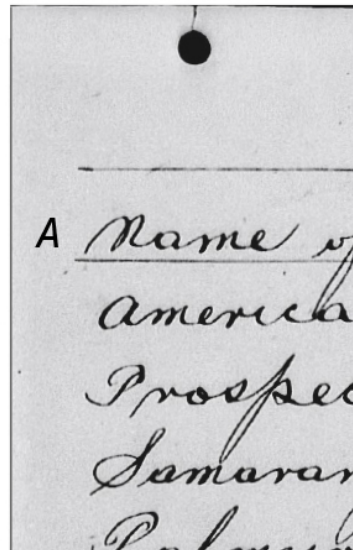 A Name of
America
Prospec
Samaran